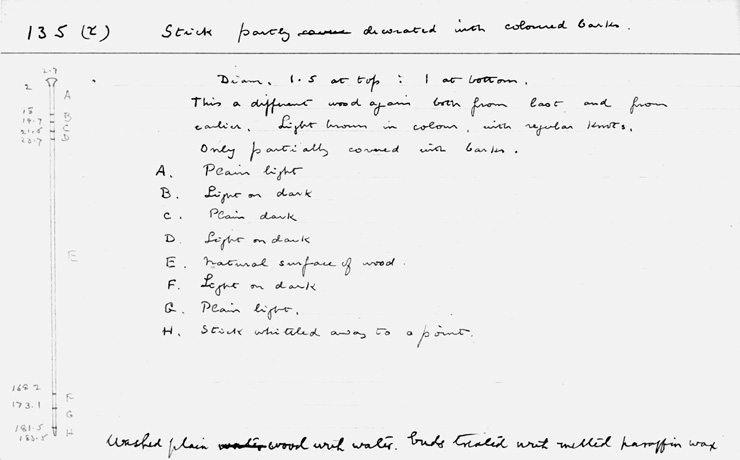 135 (2) Stick partly cover decorated with coloured barks.
2.7
2
A
Diam. 1.5 at top : 1 at bottom.
This a different wood again both from last and from
earlier. Light brown in colour, with regular knots.
Only partially covered with barks.
15
B
19.7
C
21.5
D
23.7
A. Plain light
B. Light on dark
C. Plain dark
D. Light on dark
E. Natural surface of wood.
E
F. Light on dark
G. Plain light.
H. Stick whittled away to a point.
168.2
F
173.1
G
181.5
H
183.5
Washed plain water wood with water. Ends treated with melted paraffin wax